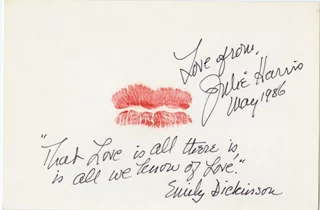 Love from,
Julie Harris
May 1986
"That Love is all there is,
is all we know of Love."
Emily Dickinson